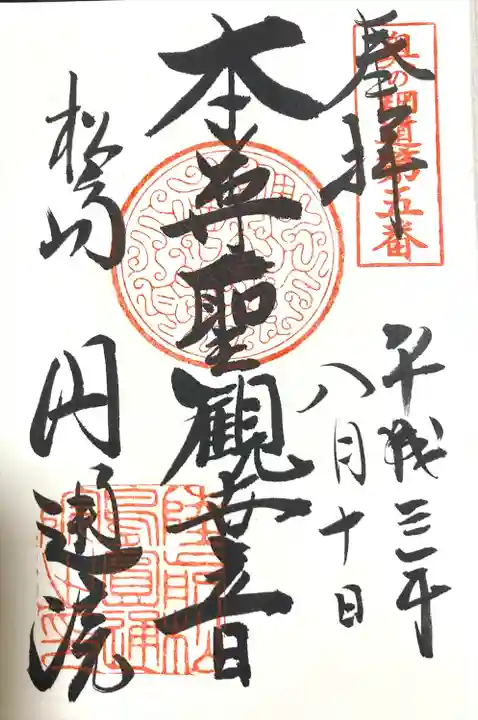 奥の細道第五番
奉拝
平成三年
八月十日
本尊聖観世音
松島
円通院
陸前松
島圓通